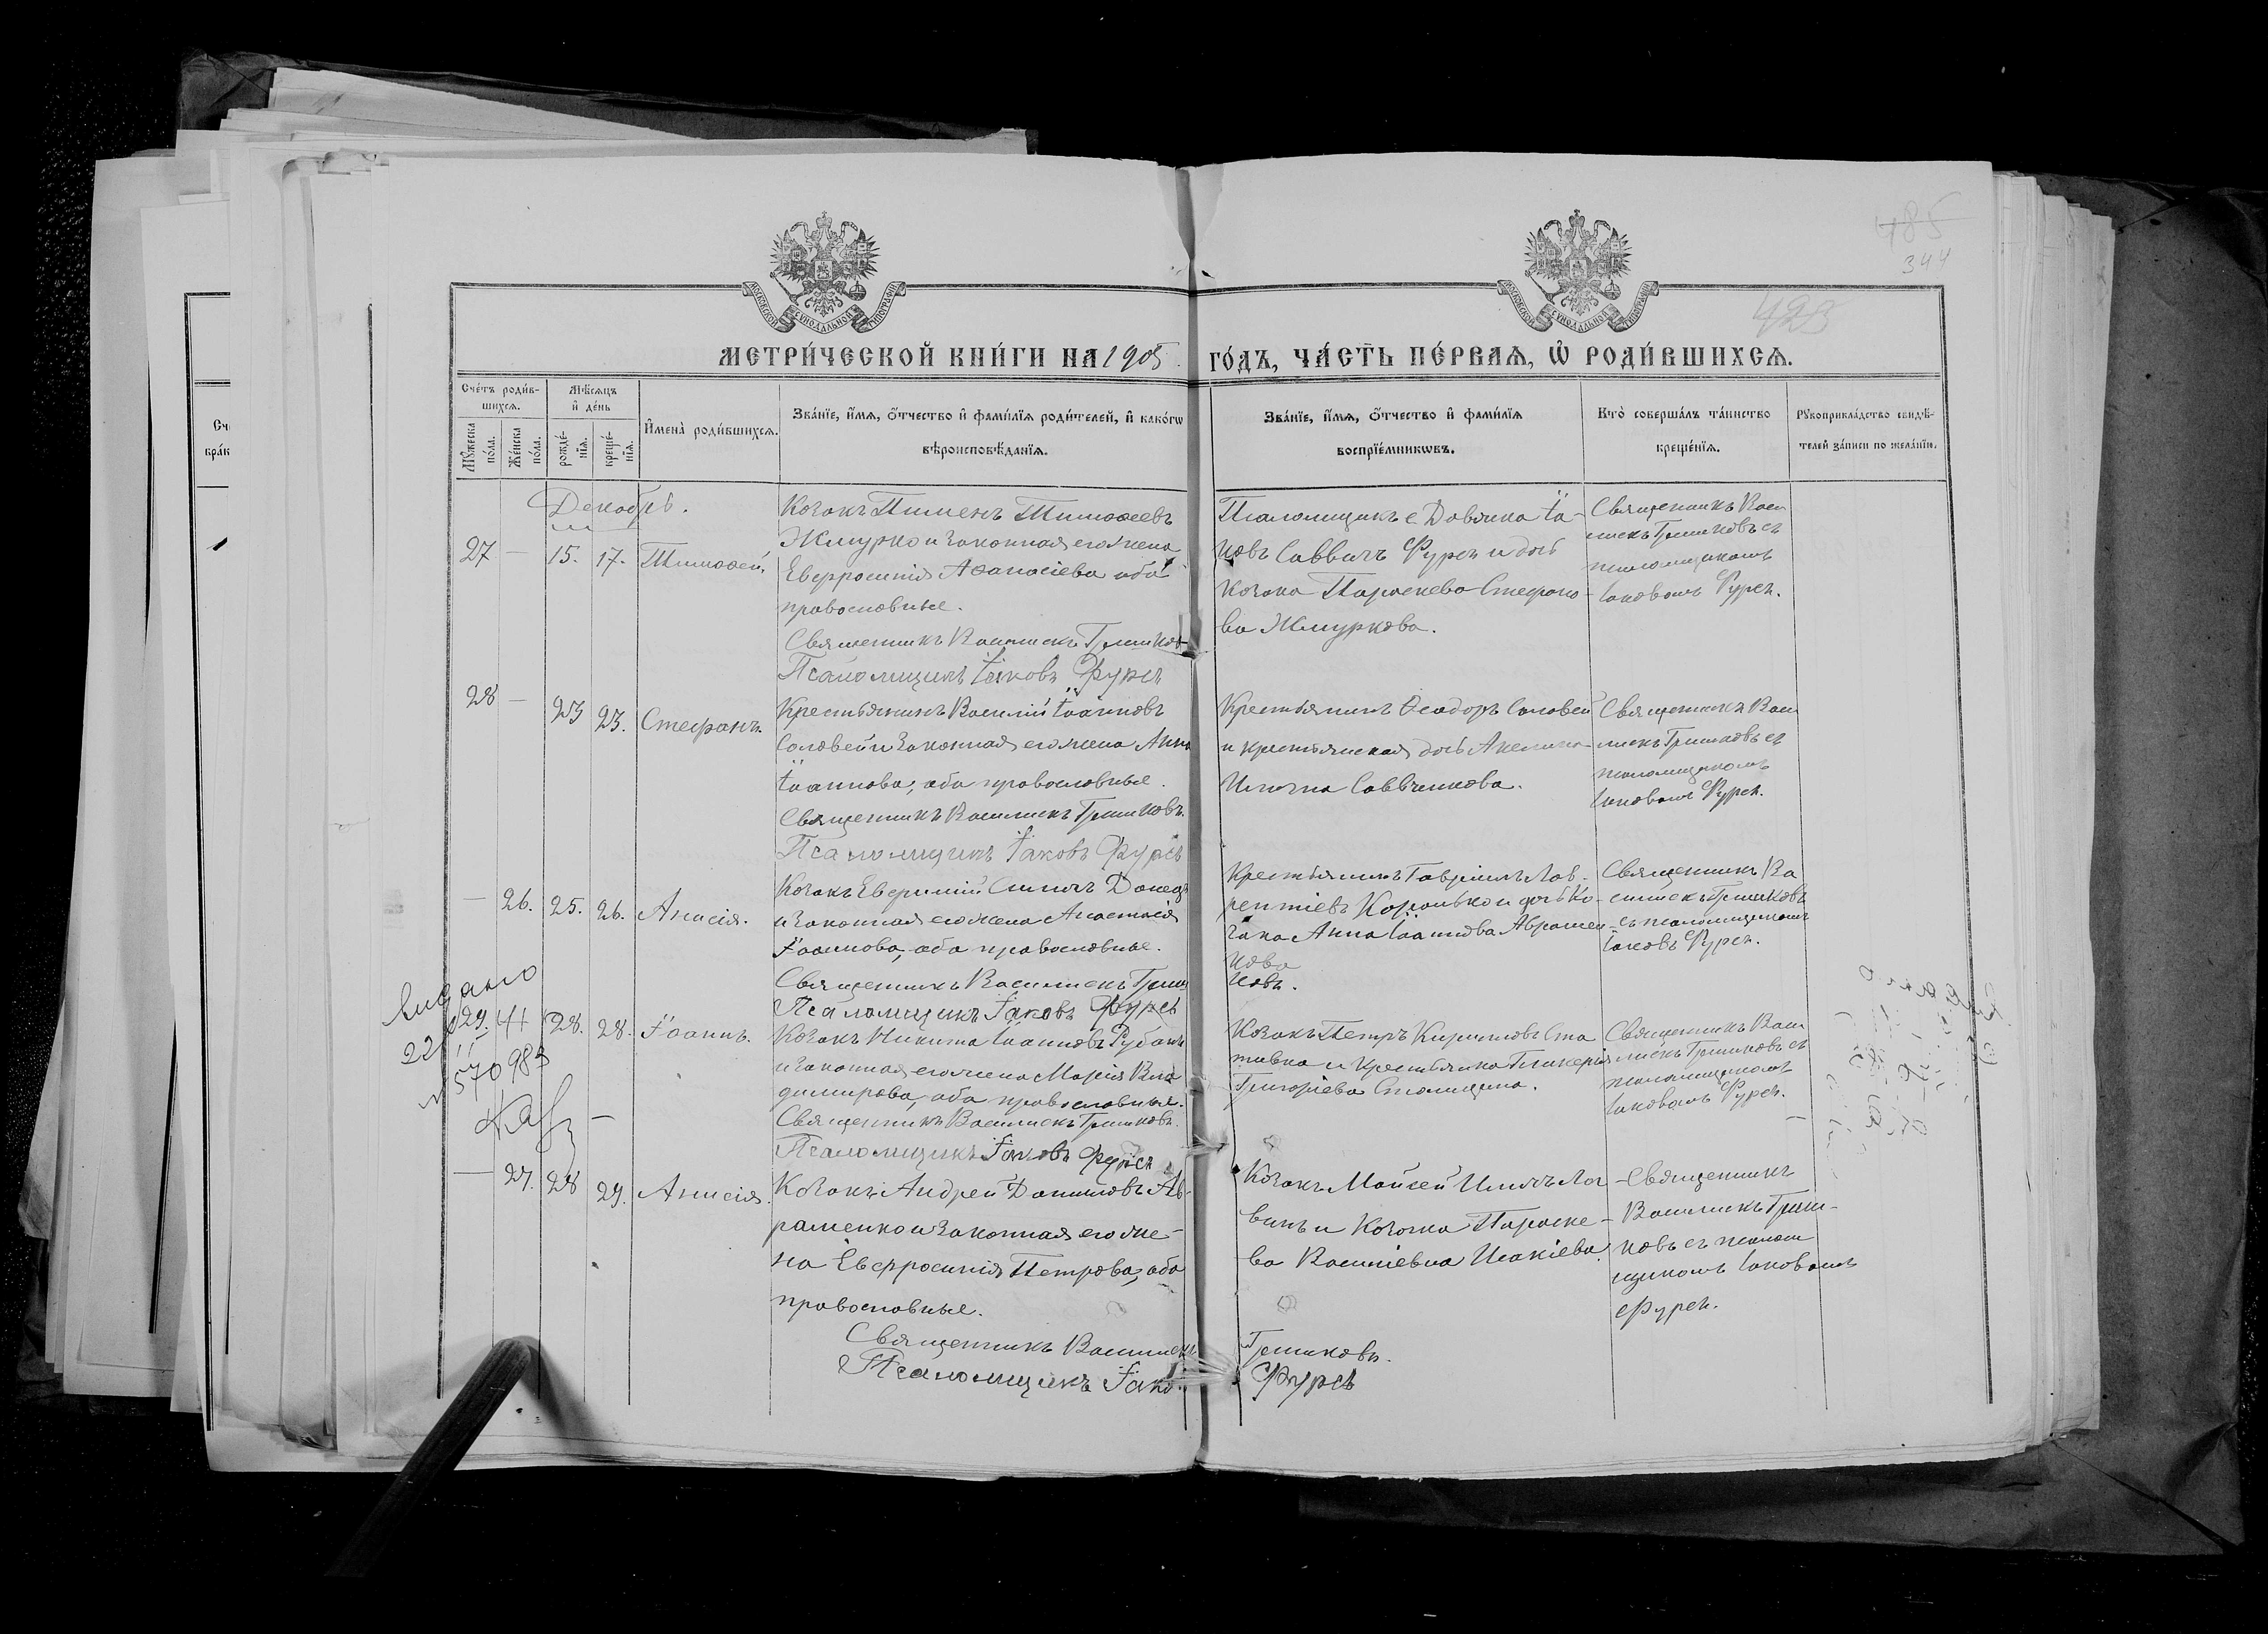 485
344
423
МОСКОВСКОЙ СѴНОДАЛЬНОЙ ТИПОГРАФІИ
МОСКОВСКОЙ СѴНОДАЛЬНОЙ ТИПОГРАФІИ
МЕТРИ́ЧЕСКОЙ КНИ́ГИ НА 1905 ГО́ДЪ, ЧА́СТЬ ПЕ́РВАѦ, Ѡ҆ РОДИ́ВШИХСѦ.
Сче́тъ роди́в-
шихсѧ.
Мѣ́сѧцъ
и҆ де́нь
Мꙋ́жеска
по́ла.
Же́нска
по́ла.
рожде́-
нїѧ.
креще́-
нїѧ.
И҆мена̀ роди́вшихсѧ.
Зва́нїе, и҆́мѧ, ѻ҆́тчество и҆ фами́лїѧ роди́телей, и҆ како́гѡ
вѣроисповѣ́данїѧ.
Зва́нїе, и҆́мѧ, ѻ҆́тчество и҆ фами́лїѧ
воспрїе́мникѡвъ.
Кто̀ соверша́лъ та́инство
креще́нїѧ.
Рꙋкоприкла́дство свидѣ́-
телей за́писи по жела́нїю.
Декабрь.
27 — 15. 17. Тимоѳей.
Козакъ Пименъ Тимоѳеевъ
Жмурко и законная его жена
Евфросинія Аѳанасіева оба
православные.
Священникъ Василискъ Гришков
Псаломщикъ Іаковъ Фурсъ
Псаломщикъ с. Довянка Іа-
ковъ Саввичъ Фурсъ и дочь
козака Параскева Стефано-
ва Жмуркова.
Священникъ Васи-
лискъ Гришковъ съ
псаломщикомъ
Іаковомъ Фурсъ.
28 — 23 23. Стефанъ.
Крестьянинъ Василій Іоанновъ
Соловей и законная его жена Анна
Іоаннова, оба православные.
Священникъ Василискъ Гришковъ.
Псаломщикъ Іаковъ Фурсъ
Крестьянинъ Ѳеодоръ Соловей
и крестьянская дочь Акелина
Ильина Саввченкова.
Священникъ Васи
лискъ Гришковъ съ
псаломщикомъ
Іаковомъ Фурсъ.
— 26. 25. 26. Анисія.
Козакъ Евфимій Симонъ Донецъ
и законная его жена Анастасія
Іоаннова, оба православные.
Священникъ Василискъ Гриш
Псаломщикъ Іаковъ Фурсъ
Крестьянинъ Гавріилъ Лав-
рентіевъ Королько и дочь ко-
зака Анна Іоаннова Абрамен-
кова
ковъ.
Священникъ Ва
силискъ Гришковъ
съ псаломщикомъ
Іаковъ Фурсъ.
видано
22/II 41
№ 570983
29. 28. 28. Іоаннъ.
Козакъ Никита Іоанновъ Рубанъ
и законная его жена Марія Вла
димирова, оба православные.
Священникъ Василискъ Гришковъ.
Псаломщикъ Іаковъ Фурсъ
Козакъ Петръ Кириловъ Ста
тивка и крестьянка Гликерія
Григоріева Столицина.
Священникъ Васи
лискъ Гришковъ съ
псаломщикомъ
Іаковомъ Фурсъ.
— 27. 28 29. Анисія.
Козакъ Андрей Даниловъ Аб-
раменко и законная его же-
на Евфросинія Петрова, оба
православные.
Священникъ Василискъ Гришковъ.
Псаломщикъ Іаков Фурсъ
Козакъ Мойсей Ильичъ Лог
винъ и козачка Параске-
ва Василіевна Исакіева.
Священникъ
Василискъ Гриш-
ковъ съ псалом
щикомъ Іаковомъ
Фурсъ.